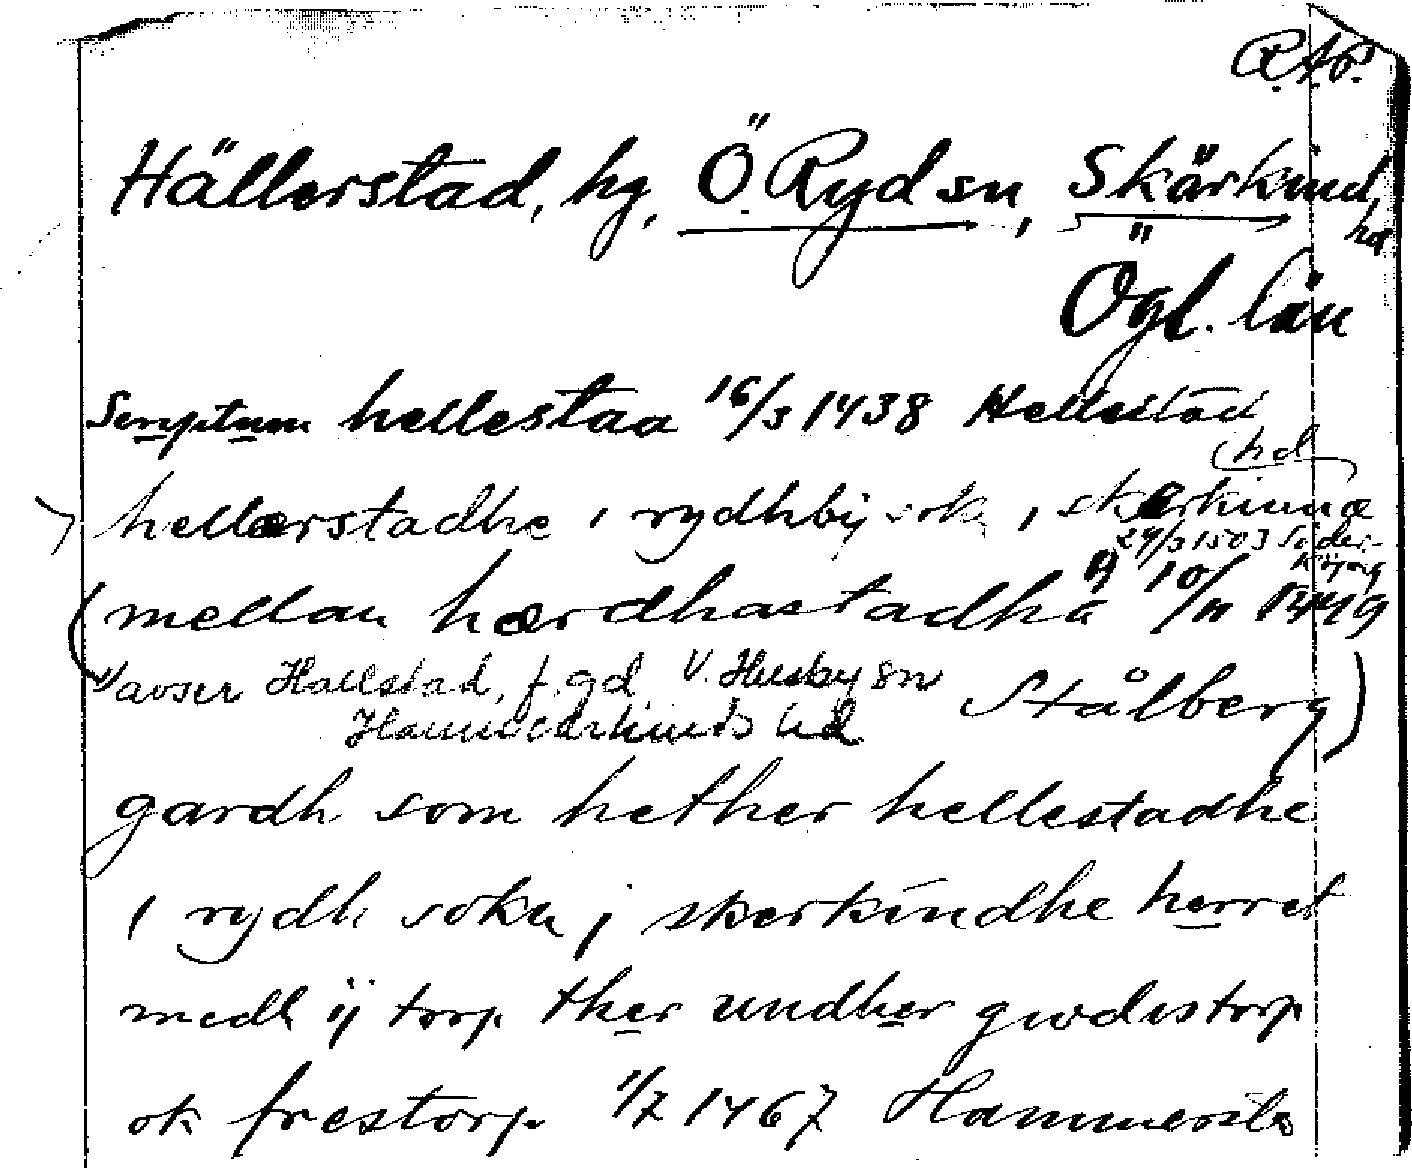 R.A.P.
Hällerstad, hg, Ö. Ryd sn, Skärkind
hd
Ögl. län
Scriptum hellestaa 16/3 1438 Hellestad
hd
hellærstadhe i rydhby sokn, i skærkinnæ
24/3 1503 Söder-
köping
(mellan hærdhastadha 1) 10/11 1449
1) avser Hallestad, f. gd, V. Husby sn
Hammarkinds hd
Stålberg)
gardh som hether hellestadhe
i rydh sokn j skerkindhe herret
medh ij torp ther undher gwdistorp
ok frestorp 1/7 1467 Hammersta